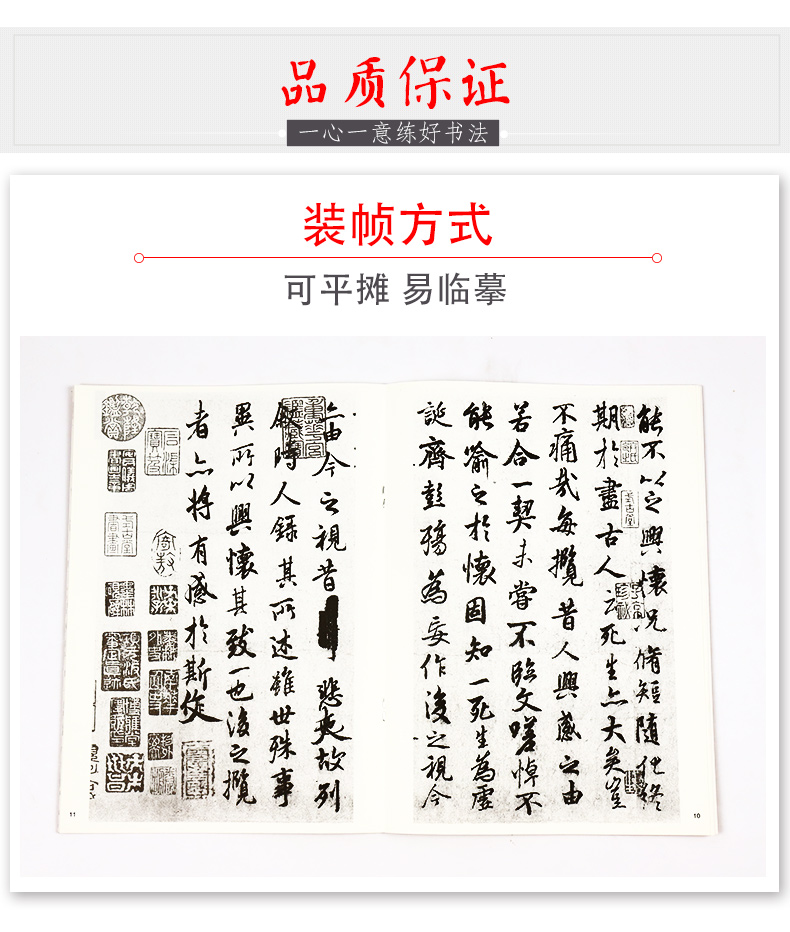 品质保证
一心一意练好书法
装帧方式
可平摊 易临摹
能不以之興懷况脩短随化終
期於盡古人云死生亦大矣豈
不痛哉每攬昔人興感之由
若合一契未嘗不臨文嗟悼不
能喻之於懷固知一死生為虚
誕齊彭殤為妄作後之視今
亦由今之視昔 悲夫故列
叙時人録其所述雖世殊事
異所以興懷其致一也後之攬
者亦将有感於斯文
11
10